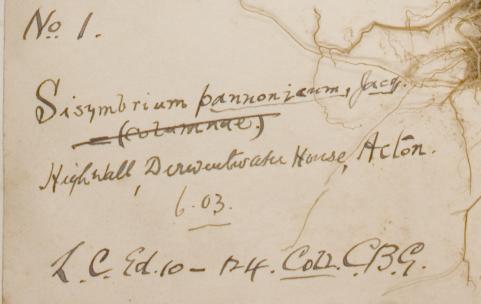 No. 1.
Sisymbrium pannonicum, Jacq.
(Columnae.)
High wall, Derwentwater House, Acton.
6.03.
L.C. Ed. 10 - 124. Coll. C.B.G.